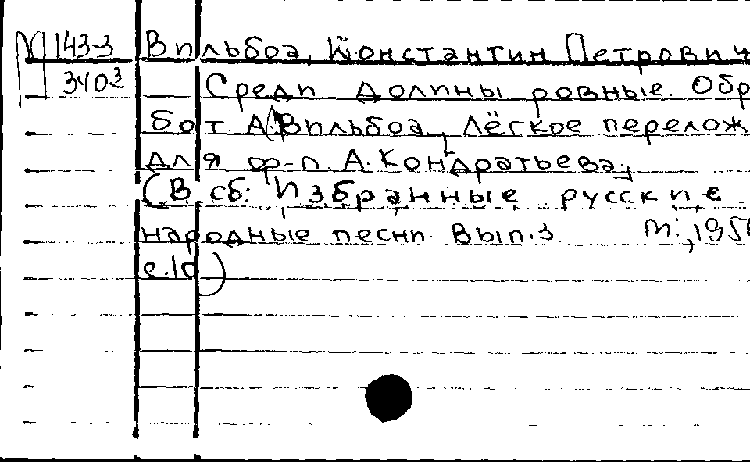 М 143-3 Вильбоа, Константин Петрович
3402 Среди долины ровные. Обр
бот А. Вильбоа, Лёгкое перелож
для ф-п. А. Кондратьева,
(В сб: Избранные русские
народные песни. Вып. 3 М., 195
с. 10)